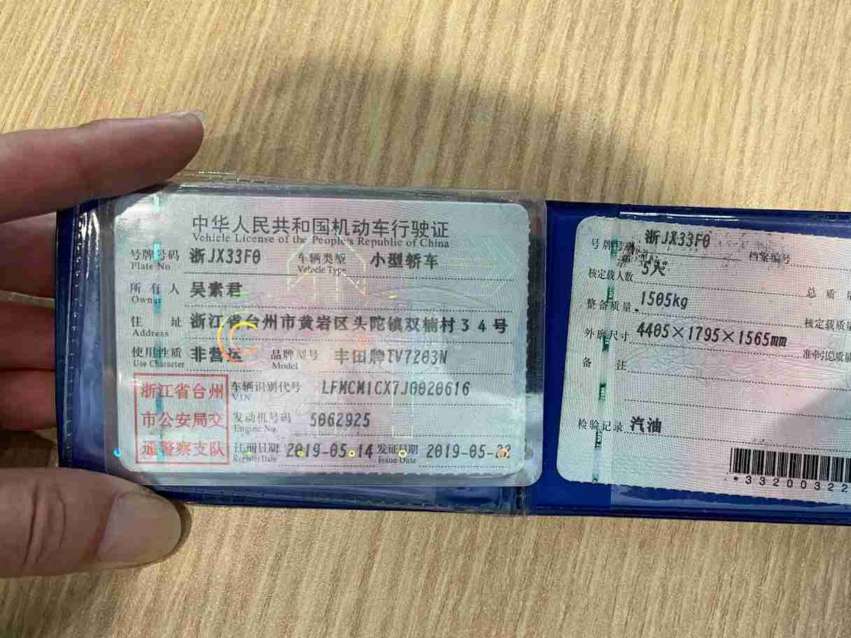 中华人民共和国机动车行驶证
Vehicle License of the People's Republic of China
号牌号码 浙JX33F0 车辆类型 小型轿车
Plate No Vehicle Type
所有人 吴素君
Owner
住址 浙江省台州市黄岩区头陀镇双楠村34号
Address
使用性质 非营运 品牌型号 丰田牌TV7203N
Use Character Model
浙江省台州
市公安局交
通警察支队
车辆识别代号 LFMCM1CX7J0020616
VIN
发动机号码 5062925
Engine No.
注册日期 2019-05-14 发证日期 2019-05-22
Register Date Issue Date
号牌号码 浙JX33F0 档案编号
核定载人数 5人 总质
整备质量 1505kg 核定载质
外廓尺寸 4405×1795×1565mm 准牵引总质
备注
检验记录 汽油
*33200322